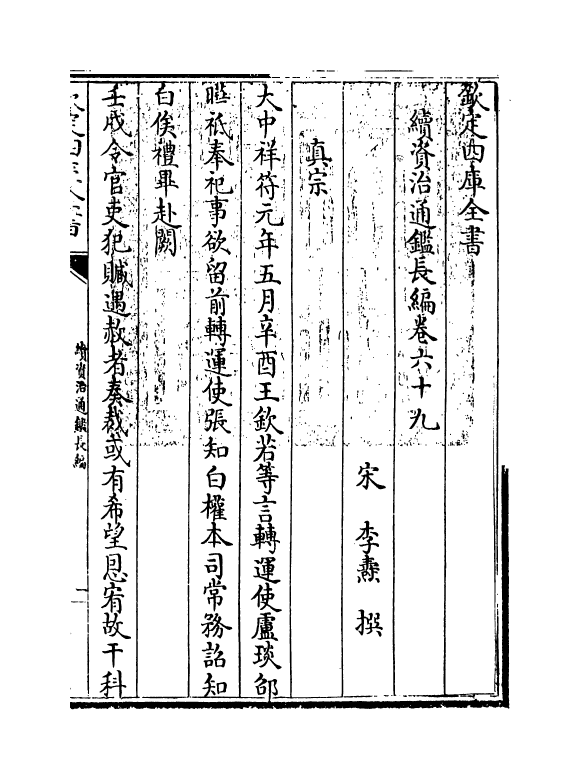 欽定四庫全書
續資治通鑑長編卷六十九
宋 李燾 撰
真宗
大中祥符元年五月辛酉王欽若等言轉運使盧琰邰
曄祗奉祀事欲留前轉運使張知白權本司常務詔知
白俟禮畢赴闕
壬戌令官吏犯贓遇赦者奏裁或有希望恩宥故干科
欽定四庫全書
續資治通鑑長編
一